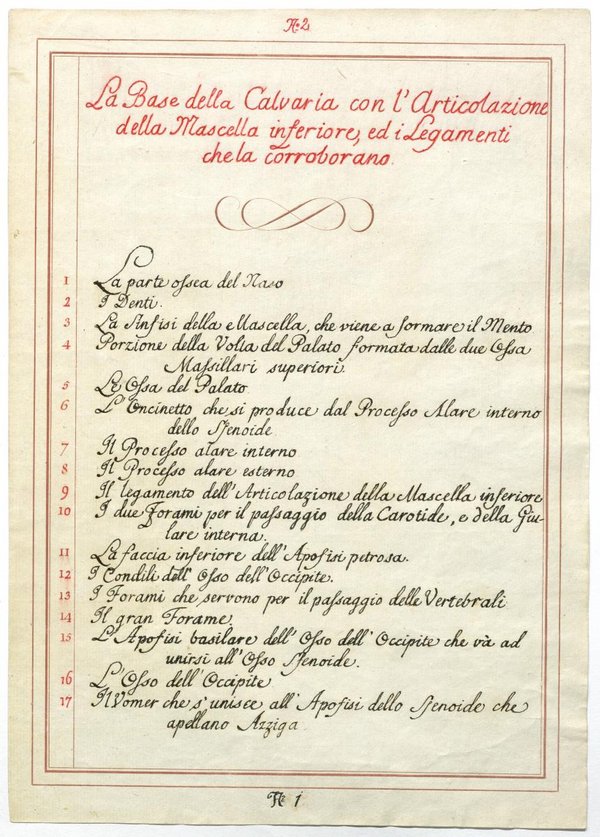 N.2
La Base della Calvaria con l'Articolazione
della Mascella inferiore, ed i Legamenti
che la corroborano.
1 La parte ossea del Naso
2 I Denti.
3 La Sinfisi della Mascella, che viene a formare il Mento
4 Porzione della Volta del Palato formata dalle due Ossa
Massillari superiori
5 Le Ossa del Palato
6 L'Oncinetto che si produce dal Processo Alare interno
dello Sfenoide
7 Il Processo alare interno
8 Il Processo alare esterno
9 Il legamento dell'Articolazione della Mascella inferiore
10 I due Forami per il passaggio della Carotide, e della Giu-
lare interna.
11 La faccia inferiore dell'Apofisi petrosa.
12 I Condili dell'Osso dell'Occipite.
13 I Forami che servono per il passaggio delle Vertebrali
14 Il gran Forame
15 L'Apofisi basilare dell'Osso dell'Occipite che và ad
unirsi all'Osso Sfenoide.
16 L'Osso dell'Occipite
17 Il Vomer che s'unisce all'Apofisi dello Sfenoide che
apellano Azziga
N. 1